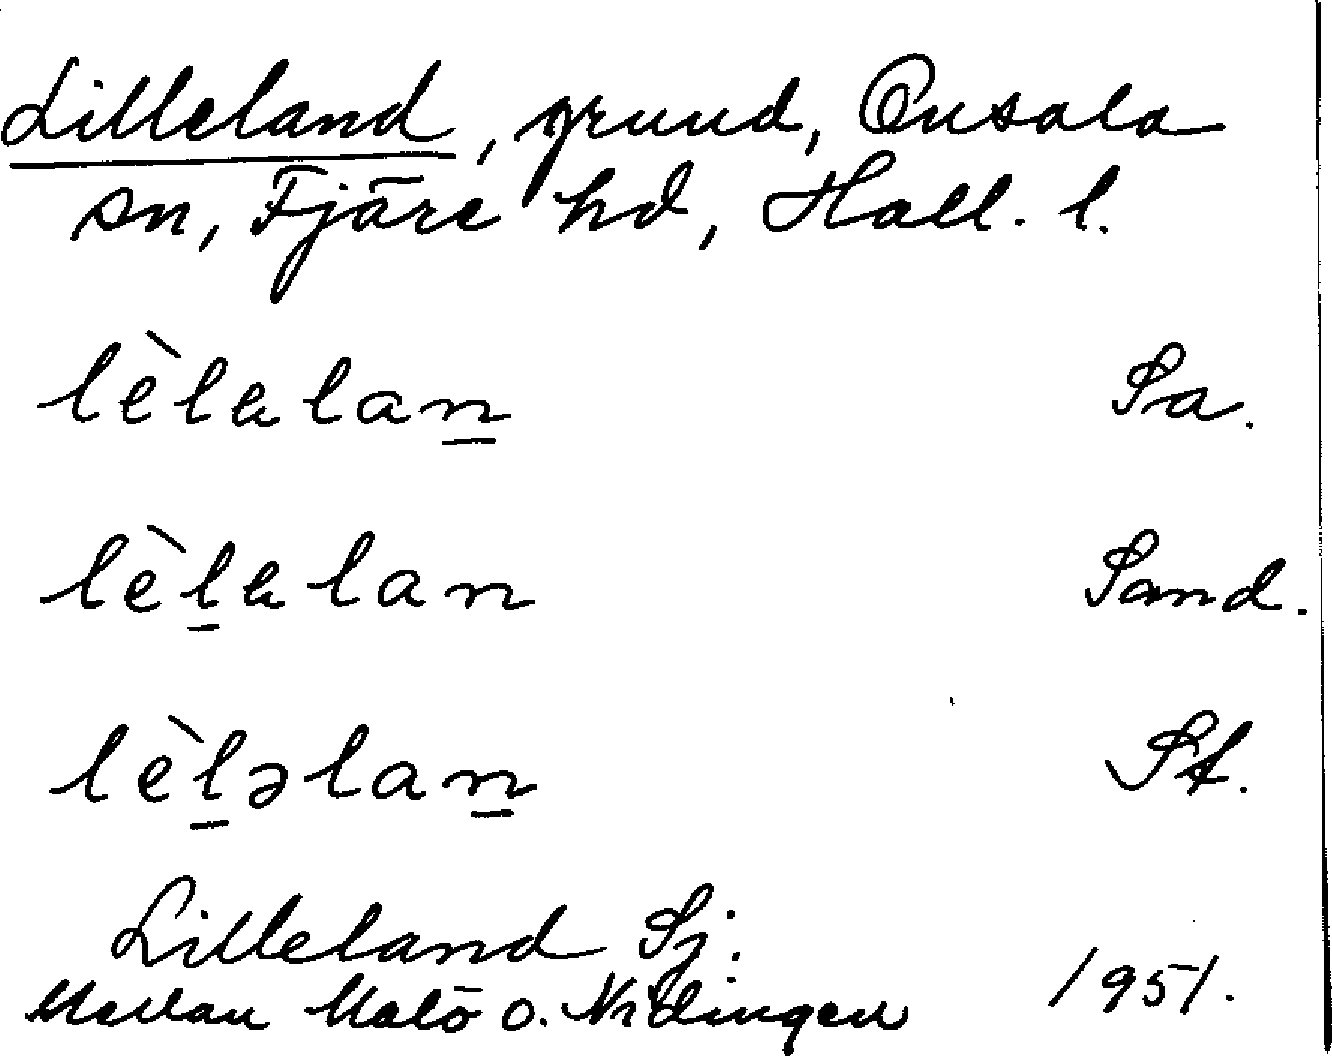 Lilleland, grund, Onsala
sn, Fjäre hd, Hall. l.
lèlalan̲ Sa.
lèl̲alan Sand.
lèl̲əlan̲ St.
Lilleland Sj.
Mellan Malö o. Nidingen 1951.